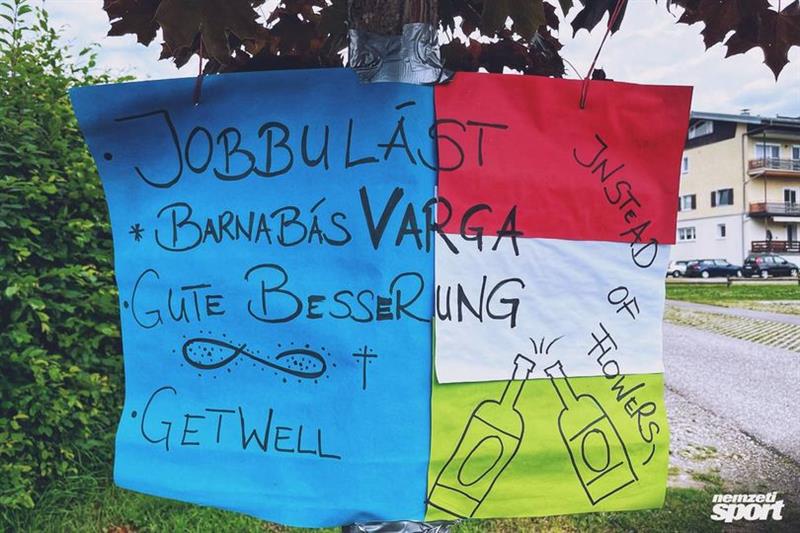 • JOBBULÁST
* BARNABÁS VARGA
• GUTE BESSERUNG
• GETWELL
INSTEAD
OF
FLOWERS
nemzeti
sport